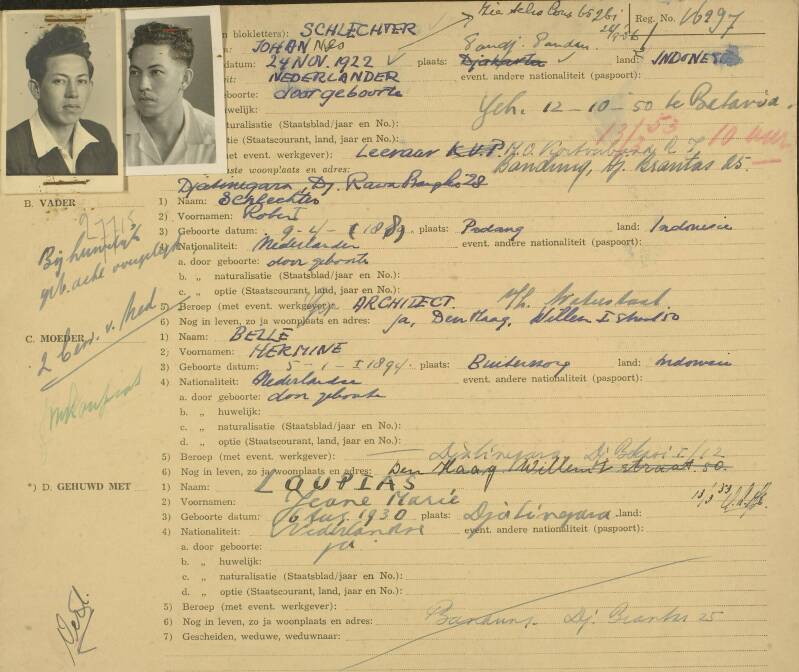 Zie
Reg. No. 16297
n blokletters): SCHLECHTER
JOHANNES
24 NOV. 1922 plaats: Tandj. Pandan Djakarta land: INDONESIË
NEDERLANDER event. andere nationaliteit (paspoort):
eboorte: door geboorte
uwelijk: Geh. 12-10-50 te Batavia.
aturalisatie (Staatsblad/jaar en No.):
(Staatscourant, land, jaar en No.): 13/1 53 10 uur
met event. werkgever): Leeraar K.U.P.
aste woonplaats en adres: Bandung, Dj. Brantas 25.
Djatinegara, Dj. Rawa Bangke 28
B. VADER 1) Naam: Schlechter
2) Voornamen: Robert
3) Geboorte datum: 9-4-1889 plaats: Padang land: Indonesie
4) Nationaliteit: Nederlander event. andere nationaliteit (paspoort):
a. door geboorte: door geboorte
b. „ naturalisatie (Staatsblad/jaar en No.):
c. „ optie (Staatscourant, land, jaar en No.):
5) Beroep (met event. werkgever): ARCHITECT. Waterstaat.
6) Nog in leven, zo ja woonplaats en adres: ja, Den Haag, Willem I straat 50
Bij huwelijk
geb. acte
2 bew. v. Ned
C. MOEDER 1) Naam: BELLE
2) Voornamen: HERMINE
3) Geboorte datum: 5-1-1894 plaats: Buitenzorg land: Indonesie
4) Nationaliteit: Nederlandse event. andere nationaliteit (paspoort):
a. door geboorte: door geboorte
b. „ huwelijk:
c. „ naturalisatie (Staatsblad/jaar en No.):
d. „ optie (Staatscourant, land, jaar en No.):
5) Beroep (met event. werkgever): — Djatinegara Dj. Bekasi I/12
6) Nog in leven, zo ja woonplaats en adres: Den Haag Willem I straat 50.
*) D. GEHUWD MET 1) Naam: LAUPIAS
2) Voornamen: Jeane Marie
3) Geboorte datum: 6 Aug. 1930 plaats: Djatinegara land:
4) Nationaliteit: Nederlandse event. andere nationaliteit (paspoort):
a. door geboorte: ja
b. „ huwelijk:
c. „ naturalisatie (Staatsblad/jaar en No.):
d. „ optie (Staatscourant, land, jaar en No.):
5) Beroep (met event. werkgever):
6) Nog in leven, zo ja woonplaats en adres: Bandung. Dj. Brantas 25
7) Gescheiden, weduwe, weduwnaar: